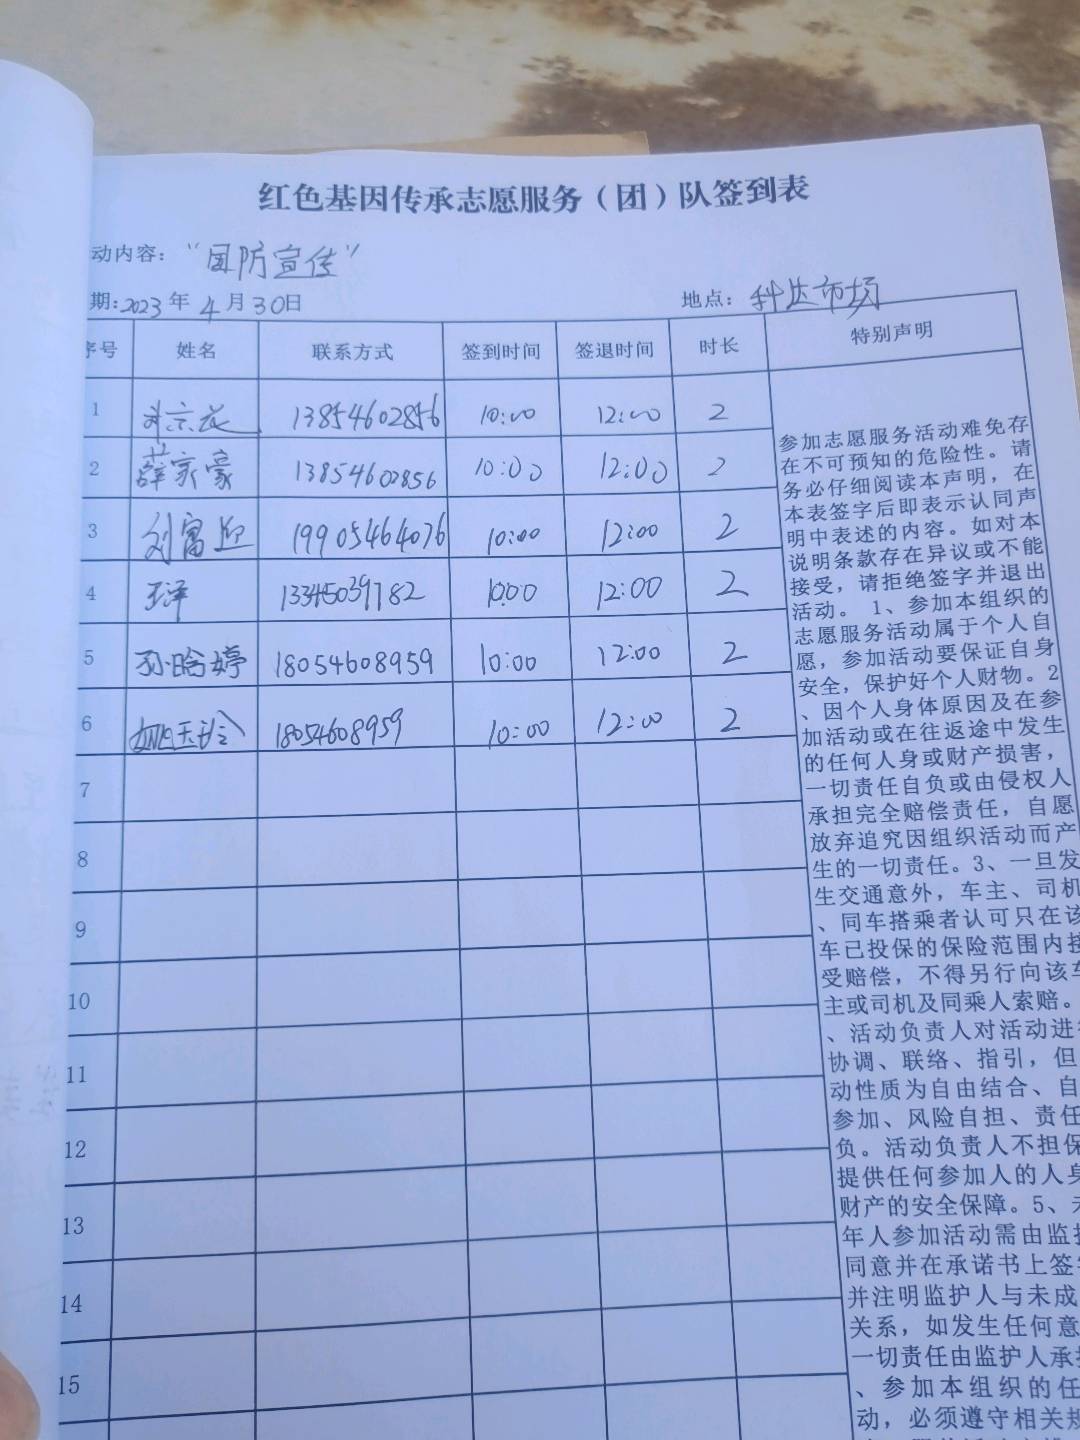 红色基因传承志愿服务（团）队签到表
动内容：“国防宣传”
期:2023年4月30日 地点：科达市场
序号 姓名 联系方式 签到时间 签退时间 时长 特别声明
1 13854602856 10:00 12:00 2
2 薛家豪 13854602856 10:00 12:00 2
3 刘富迎 19905464076 10:00 12:00 2
4 王洋 13345039782 10:00 12:00 2
5 孙晗婷 18054608959 10:00 12:00 2
6 18054608959 10:00 12:00 2
7
8
9
10
11
12
13
14
15
参加志愿服务活动难免存
在不可预知的危险性。请
务必仔细阅读本声明，在
本表签字后即表示认同声
明中表述的内容。如对本
说明条款存在异议或不能
接受，请拒绝签字并退出
活动。1、参加本组织的
志愿服务活动属于个人自
愿，参加活动要保证自身
安全，保护好个人财物。2
、因个人身体原因及在参
加活动或在往返途中发生
的任何人身或财产损害，
一切责任自负或由侵权人
承担完全赔偿责任，自愿
放弃追究因组织活动而产
生的一切责任。3、一旦发
生交通意外，车主、司机
、同车搭乘者认可只在该
车已投保的保险范围内接
受赔偿，不得另行向该车
主或司机及同乘人索赔。
、活动负责人对活动进行
协调、联络、指引，但
动性质为自由结合、自
参加、风险自担、责任
负。活动负责人不担保
提供任何参加人的人身
财产的安全保障。5、未
年人参加活动需由监护
同意并在承诺书上签字
并注明监护人与未成
关系，如发生任何意
一切责任由监护人承担
、参加本组织的任
动，必须遵守相关规